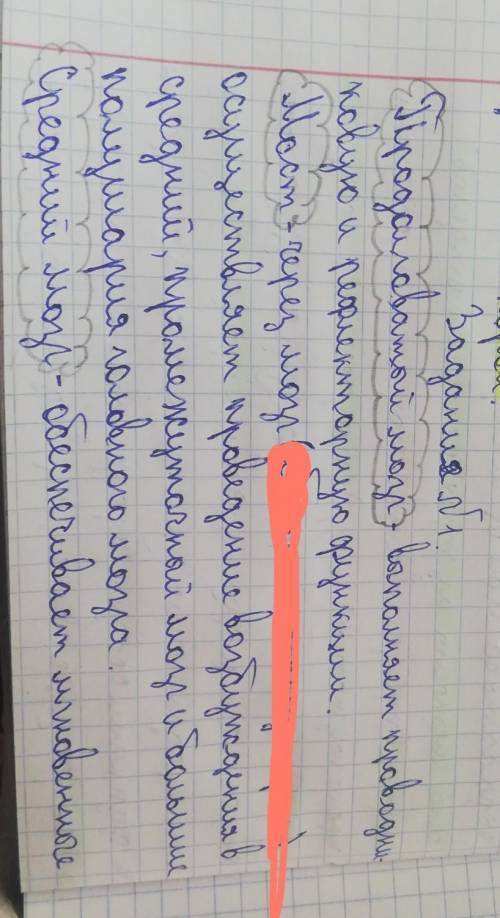 Задания №1.
Продолговатый мозг - выполняет проводни-
ковую и рефлекторную функции.
Мост - через мозг
осуществляет проведение возбуждения в
средний, промежуточной мозг и большие
полушария головного мозга.
Средний мозг - обеспечивает мгновенное